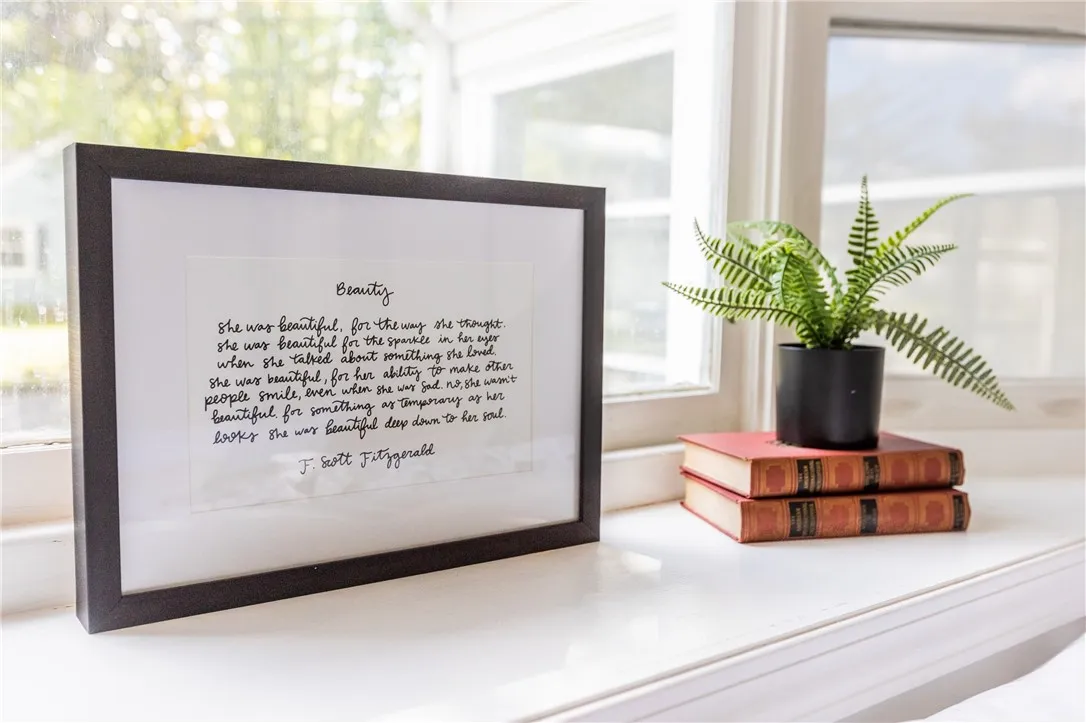 Beauty
she was beautiful, for the way she thought.
she was beautiful for the sparkle in her eyes
when she talked about something she loved.
she was beautiful, for her ability to make other
people smile, even when she was sad. no, she wasn't
beautiful. for something as temporary as her
looks she was beautiful deep down to her soul.
F. Scott Fitzgerald